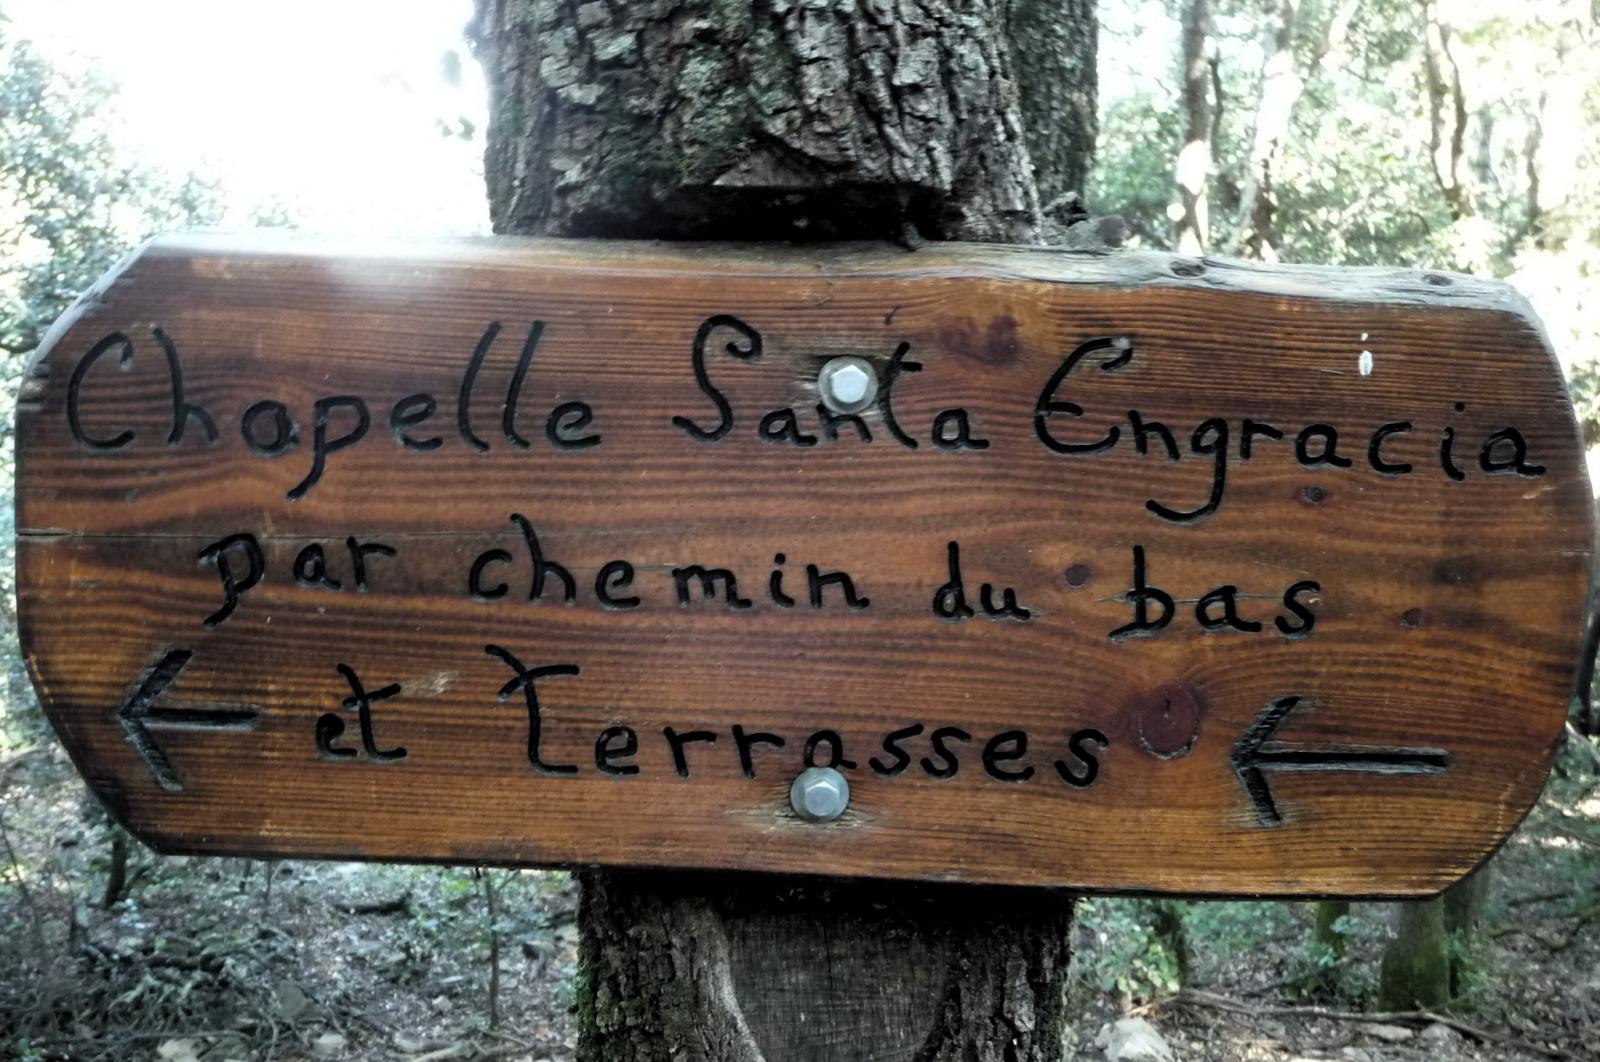 Chapelle Santa Engracia
par chemin du bas
← et Terrasses ←